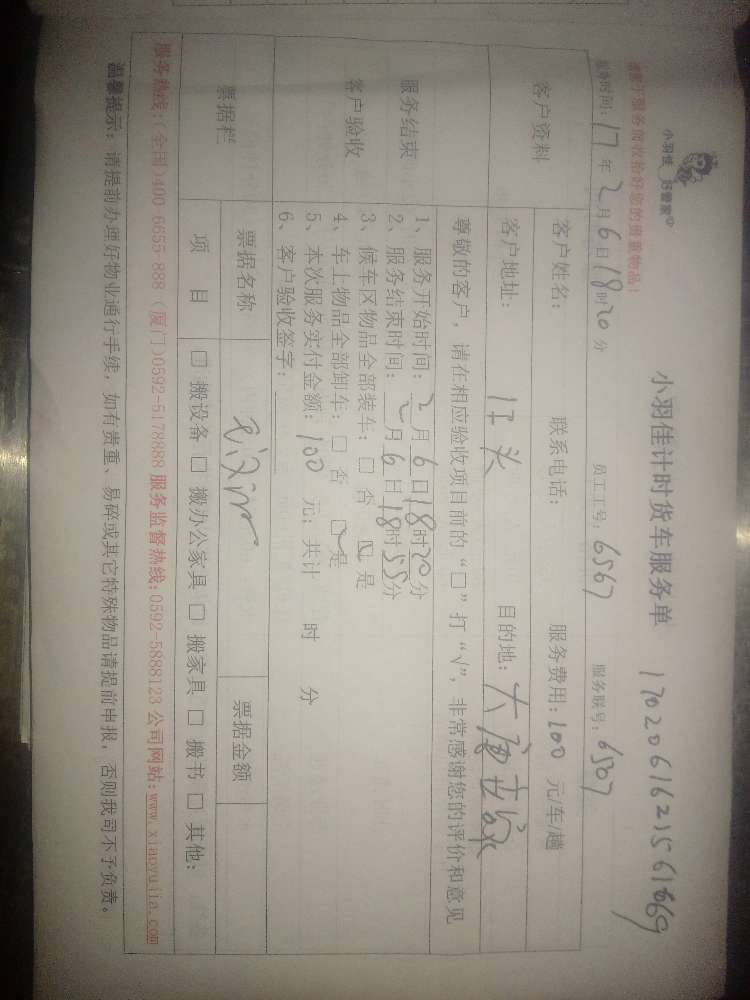 小羽佳 好管家
请客户服务前收拾好您的贵重物品！
小羽佳计时货车服务单
服务时间：17年2月6日18时20分 员工工号：6567 服务联号：6507
客户资料
客户姓名： 联系电话： 服务费用：100 元/车/趟
客户地址： 目的地：
服务结束
客户验收
尊敬的客户，请在相应验收项目前的“□”打“√”，非常感谢您的评价和意见
1、服务开始时间：2月6日18时20分
2、服务结束时间：2月6日18时55分
3、候车区物品全部装车：□ 否 ☑ 是
4、车上物品全部卸车：□ 否 ☑ 是
5、本次服务实付金额：100 元；共计 时 分
6、客户验收签字：
票据栏
票据名称 票据金额
项 目 □ 搬设备 □ 搬办公家具 □ 搬家具 □ 搬书 □ 其他：
服务热线：(全国)400-6655-888 (厦门)0592-5178888 服务监督热线：0592-5888123 公司网站：www.xiaoyujia.com
温馨提示：请提前办理好物业通行手续，如有贵重、易碎或其它特殊物品请提前申报，否则我司不予负责。